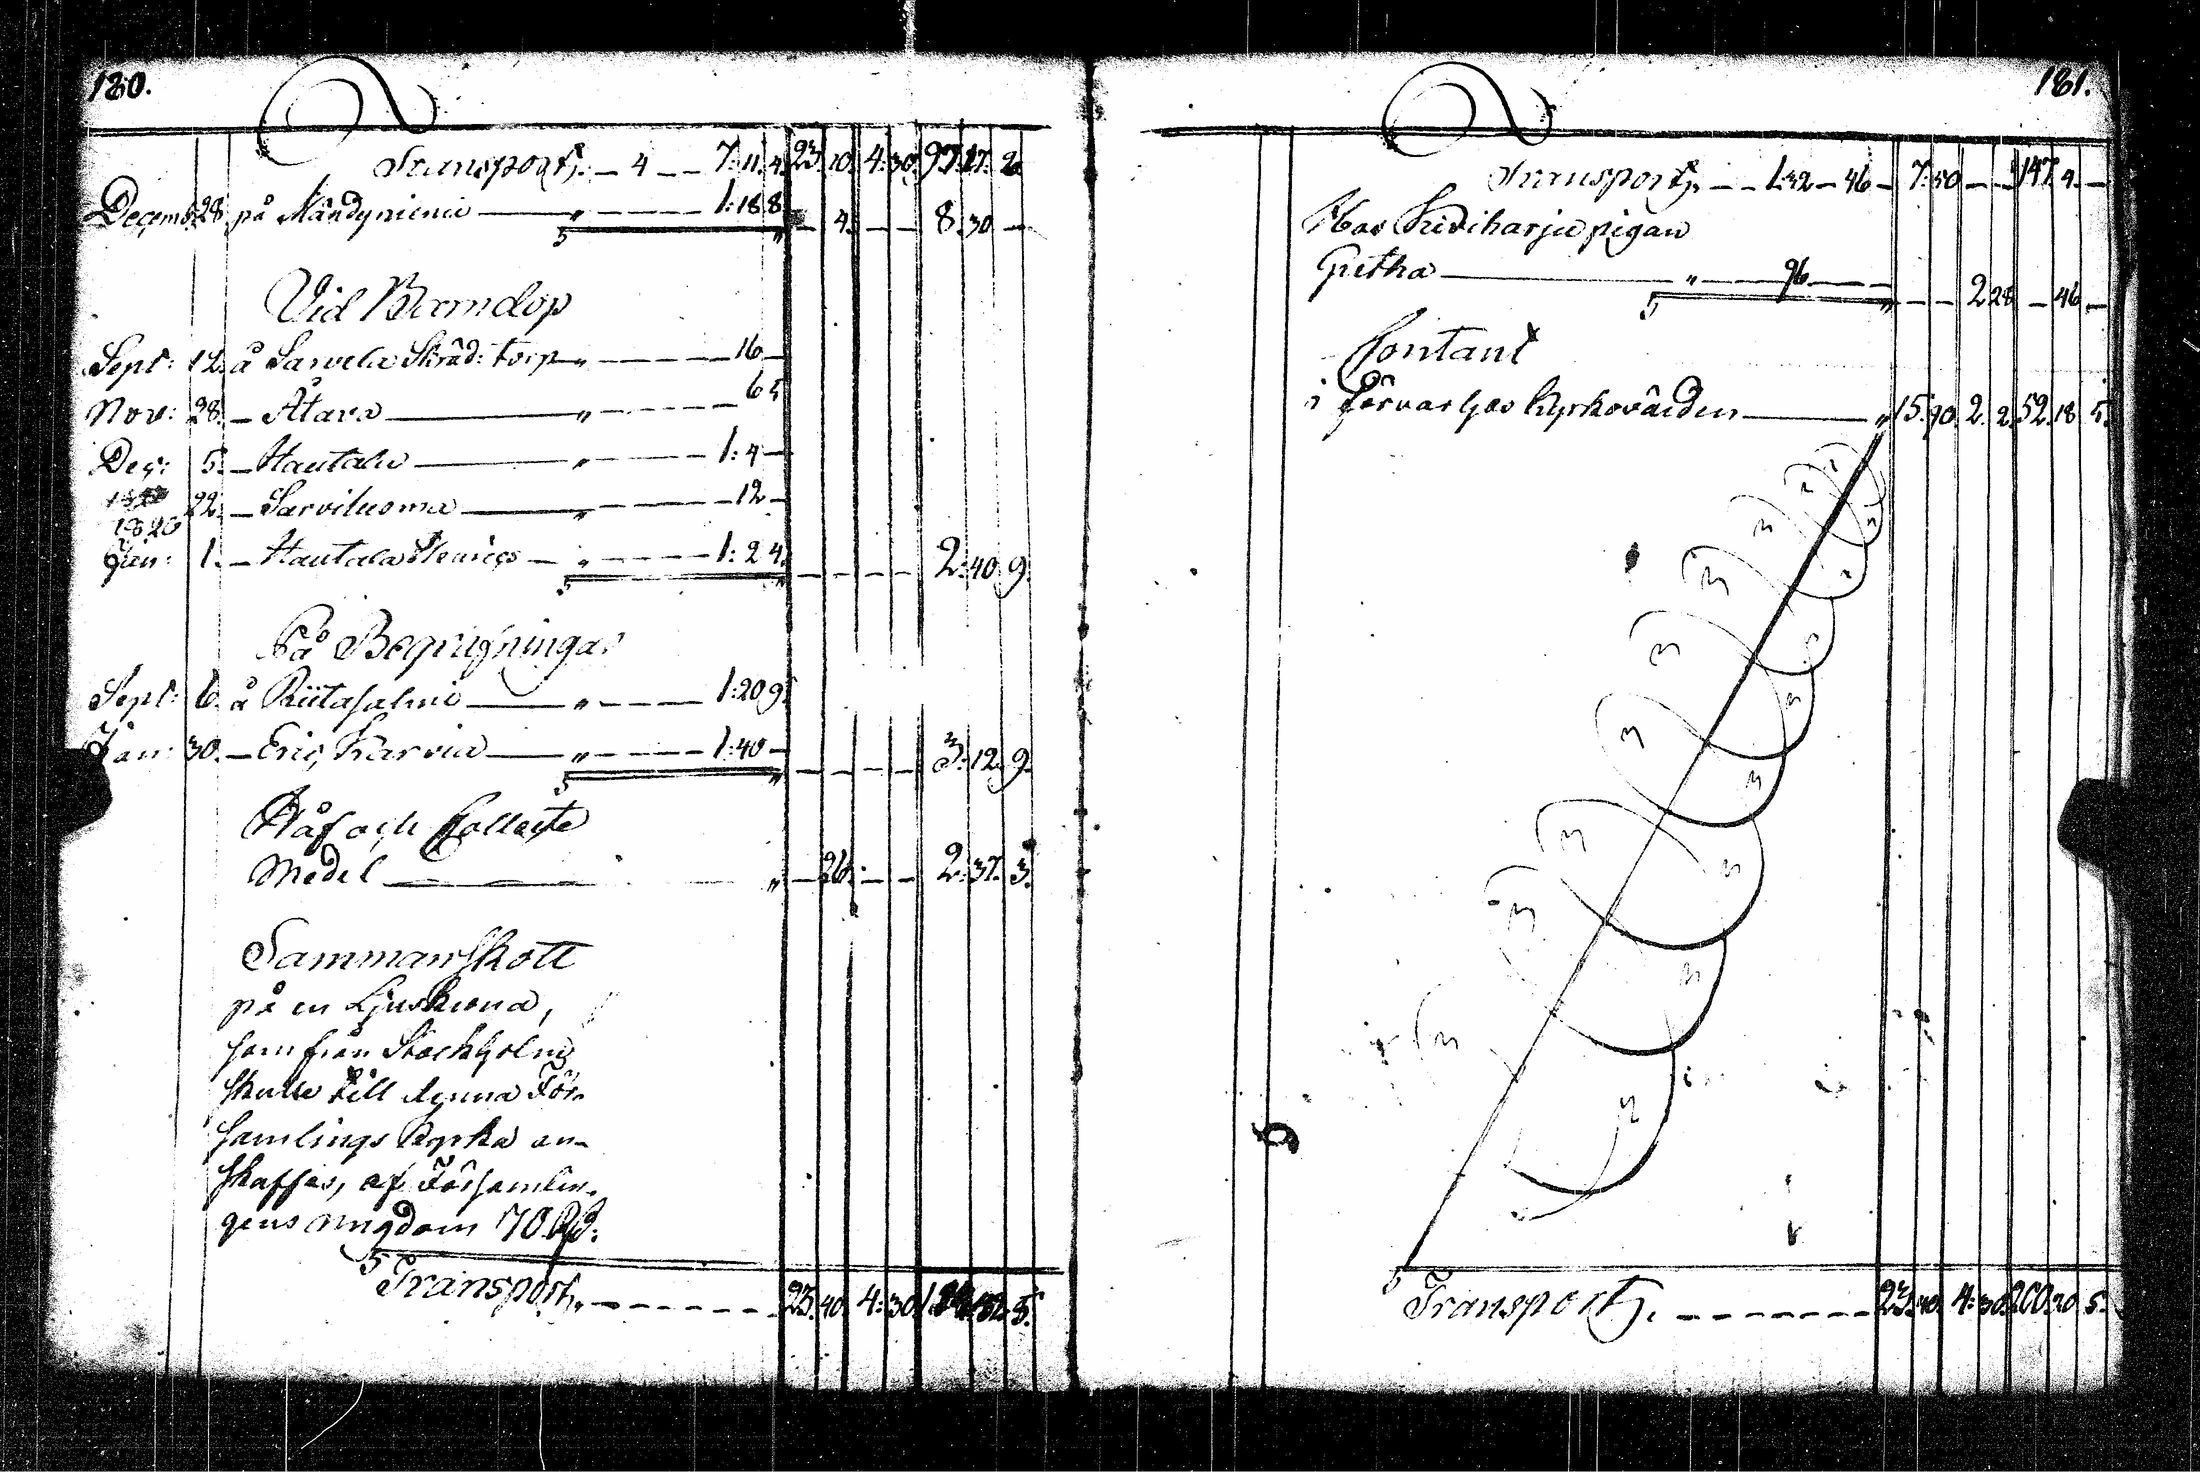 180.
Transport, — 4 — 7: 11. 4. 23. 10. 4: 30. 97. 17. 2
Decemb: 28. på Mändyniemi — " — 1: 18 8. — 4. — — 8. 30 —
Vid Barndop
Sept: 12. å Sarvela Skräd: torp — " — 16 —
Nov: 28. — Åtava — " — 6 5
Dec: 5. — Hautala — " — 1: 4 —
22. — Sarviluoma — " — 12 —
1820
Jan: 1. — Hautala — " — 1: 2 4. — — — — 2: 40. 9.
På Begrafningar
Sept: 6. å Riitasalmi — " — 1: 20 9.
Jan: 30. — Eric Karvia — " — 1: 40 — — — — — 3: 12. 9.
Håf och Collecte
Medel — " — 26. — — 2: 37. 3.
Sammanskott
på en Ljuskrona,
som från Stockholm
skulle till denna För-
samlings Kyrka an-
skaffas, af Församlin-
gens ungdom 70 Rd:
Transport, — 23. 40. 4: 30. 5.
181.
Transport, — 132 — 46 — 7: 30 — — 147. 4. —
Hos Kiviharju pigan
Gretha — " — 96 — — — 2 28 — 46 —
Contant
i förvar hos Kyrkovärden — " 15. 90. 2. 2. 52. 18 5.
Transport, — 23. 40. 4: 30. 200. 20 5.